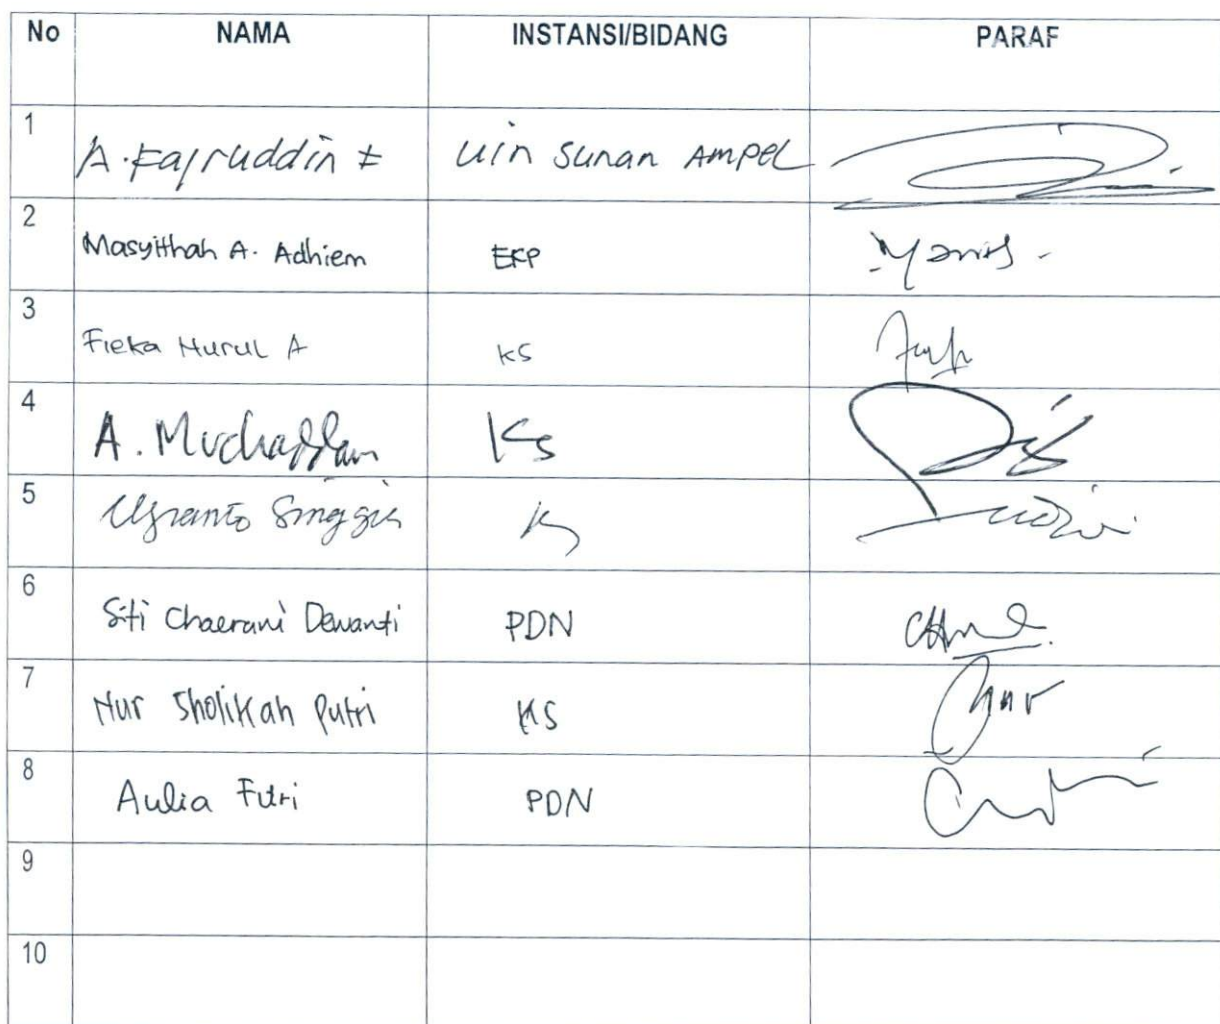 No NAMA INSTANSI/BIDANG PARAF
1 A. Fajruddin F UIN SUNAN AMPEL
2 Masyithah A. Adhiem EKP
3 Fieka Nurul A KS
4 A. Muchaddam KS
5 Ujianto Singgih KS
6 Siti Chaerani Dewanti PDN
7 Nur Sholikah Putri KS
8 Aulia Fitri PDN
9
10